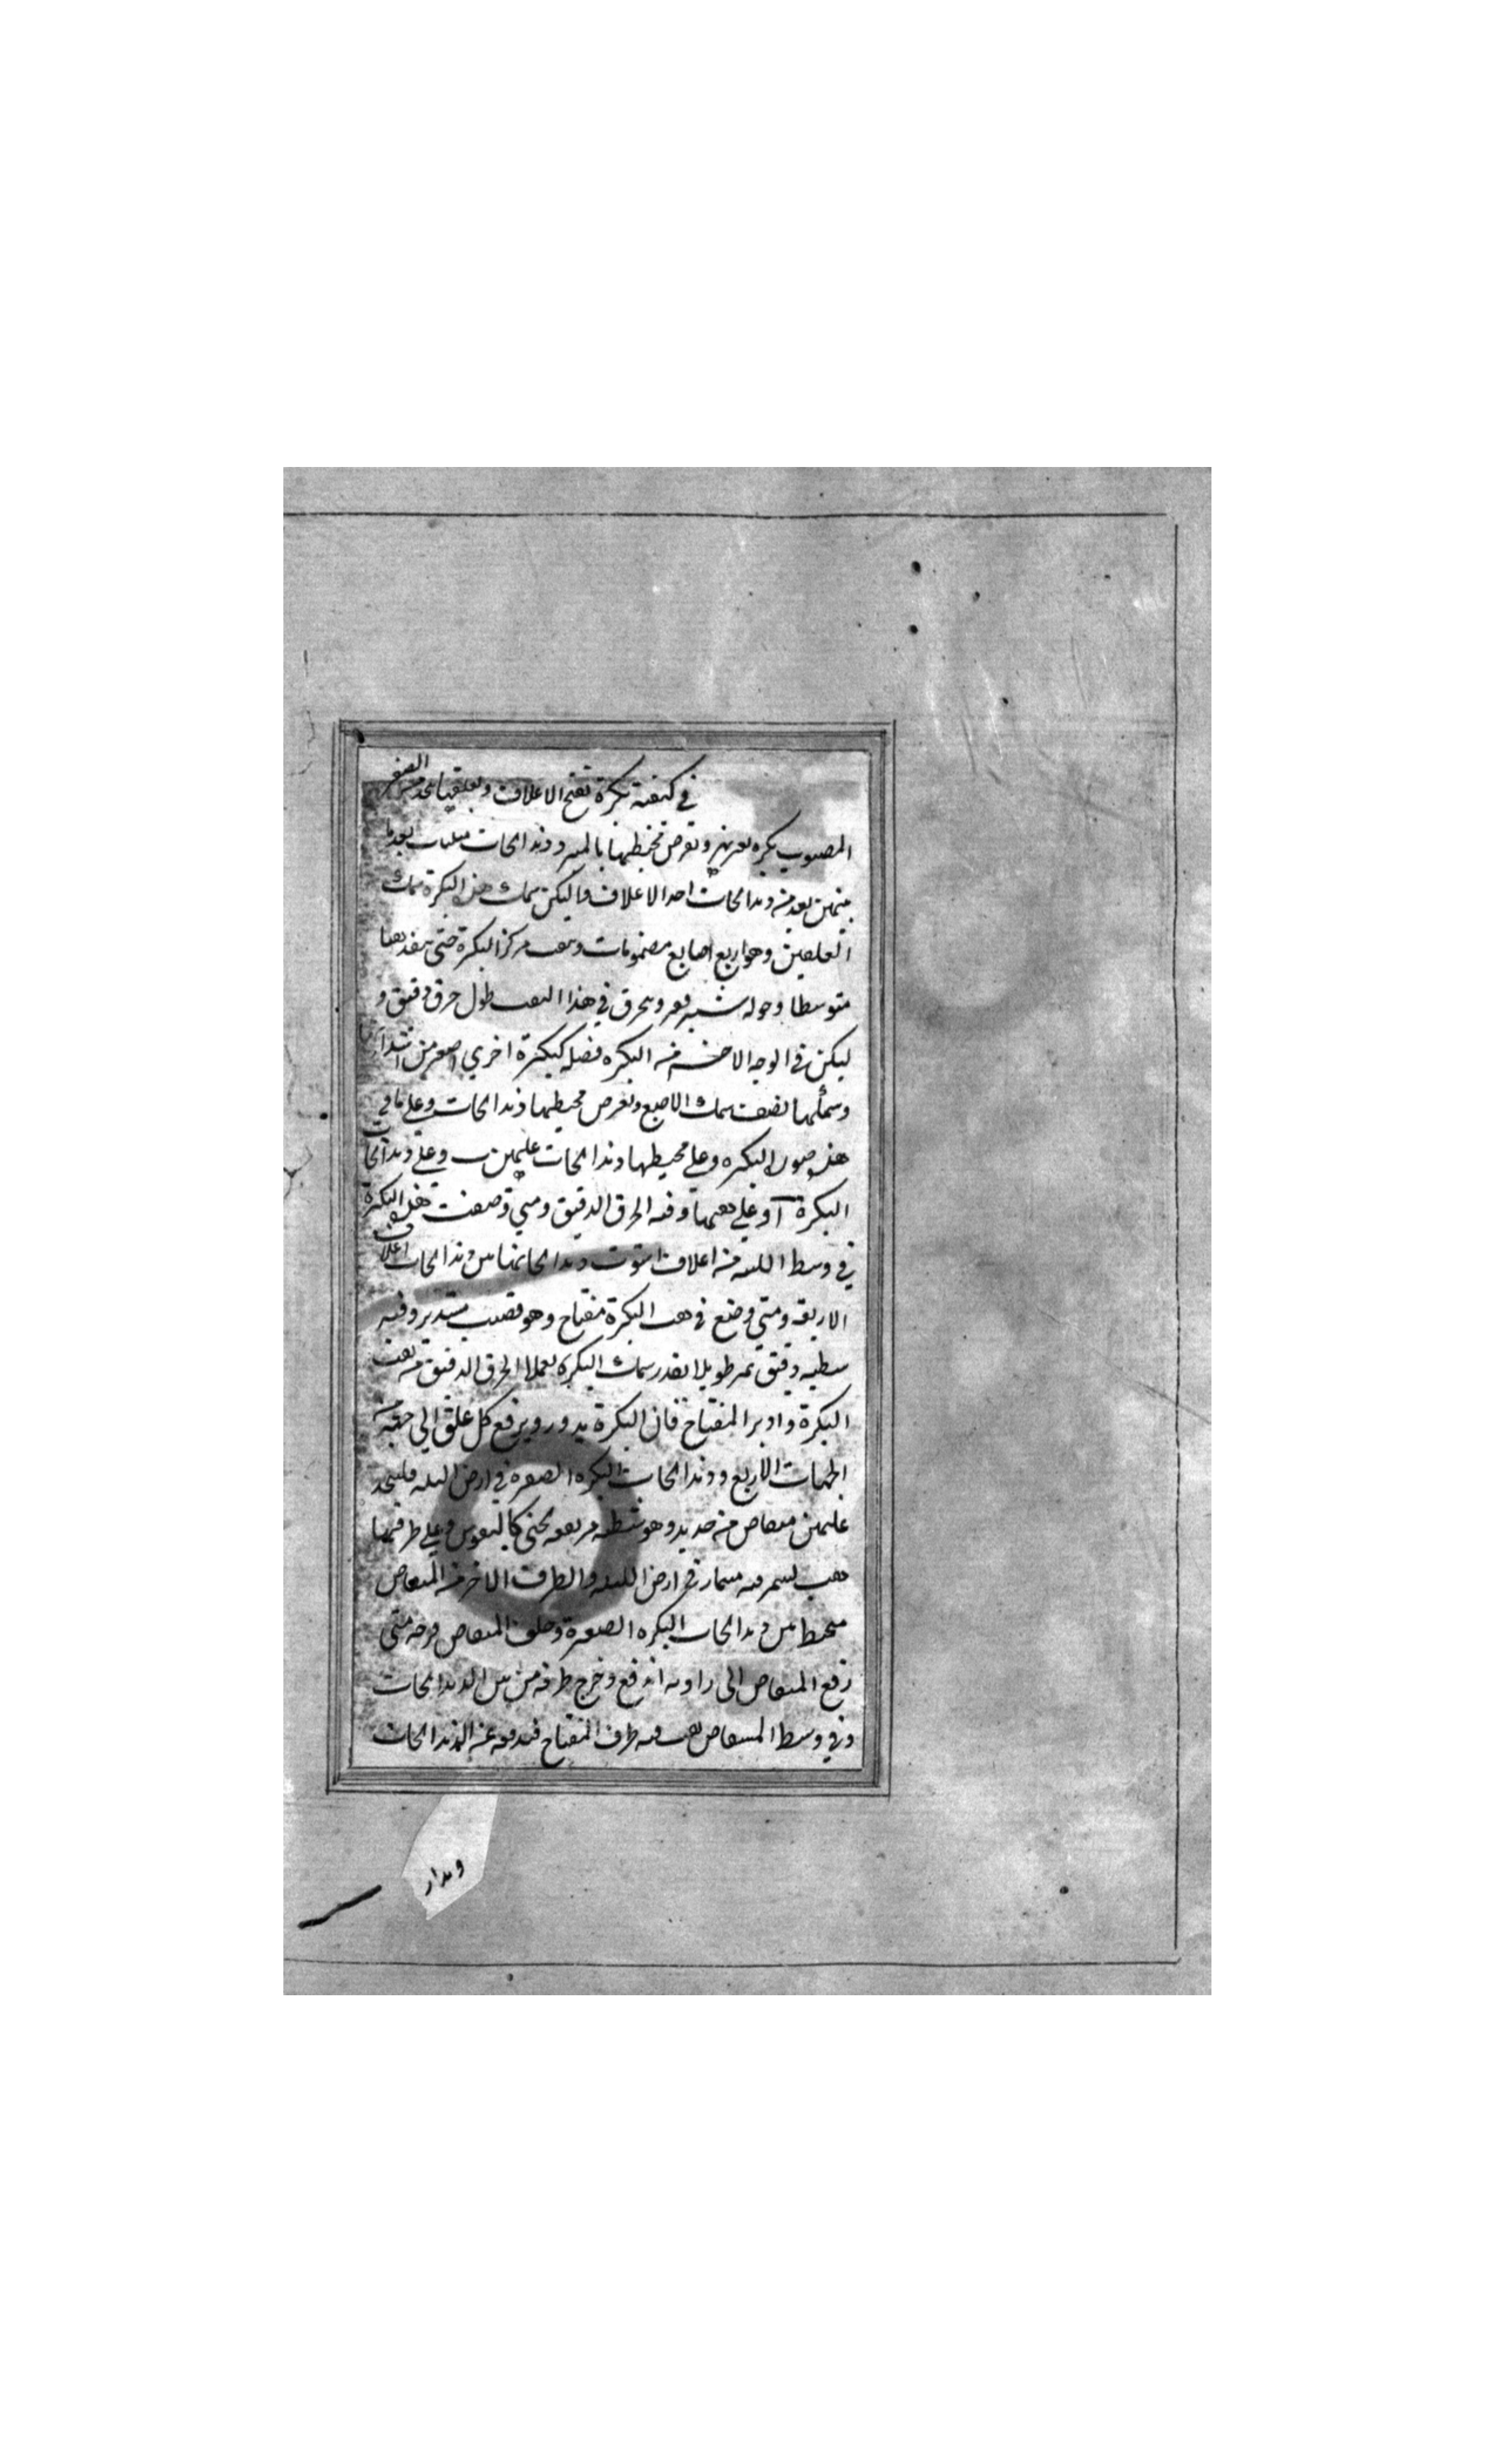 في كيفية بكرة تفتح الاغلاق وتغلقها يتخذ من الصفر
المصبوب بكره وتفرض محيطها بالمبرد دندانجات بعد ما
بينهن بعد دندانجات احد الاغلاق وليكن سمك هذه البكرة سمك
الغلقين وهو اربع اصابع مضمومات وثقب مركز البكرة حتى ينفذ ثقبا
متوسطا وحوله شبه ويخرق في هذا الثقب طول خرق دقيق و
ليكن في الوجه الاخر من البكره فضله كبكرة اخري اصغر من
وسمكها نصف سمك الاصبع وتفرض محيطها دندانجات وعلي ما في
هذه صورة البكره وعلي محيطها دندانجات عليهن ب وعلي دندانجات
البكرة آ وعلي ثقبها وفيه الخرق الدقيق ومتي وضعت هذه البكرة
في وسط من اغلاق استوت دندانجاتها بين دندانجات اغلاق
الاربعة ومتي وضع في ثقب البكرة مفتاح وهو قضيب مستدير وفيه
شظيه دقيق تمر طويلا بقدر سمك البكرة الخرق الدقيق من ثقب
البكرة وادير المفتاح فان البكرة يدور ويرفع كل غلق الي جهة من
الجهات الاربع ودندانجات البكره الصغيره في ارض فليتخذ
عليهن منقاص من حديد وهو شظيه مربعه تحنى كالقوس وعلي طرفها
ثقب ليسمر فيه مسمار في ارض والطرف الاخر من المنقاص
بين دندانجات البكره الصغيرة وخلف المنقاص فرجه متي
رفع المنقاص الى اندفع وخرج طرفه من بين الدندانجات
وفي وسط المنقاص ثقب فيه طرف المفتاح فيدفعه عن الدندانجات
ويدار